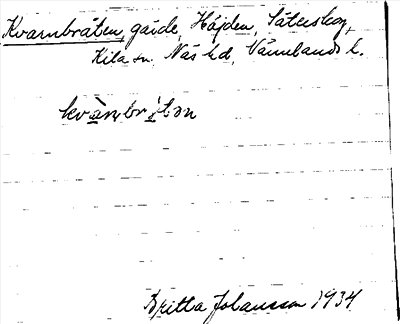 Kvarnbråten, gärde, Höjden, Säterskog,
Kila sn. Näs hd, Värmlands l.
kvà̀ɳbrɔ̀tən
Britta Johansson 1934